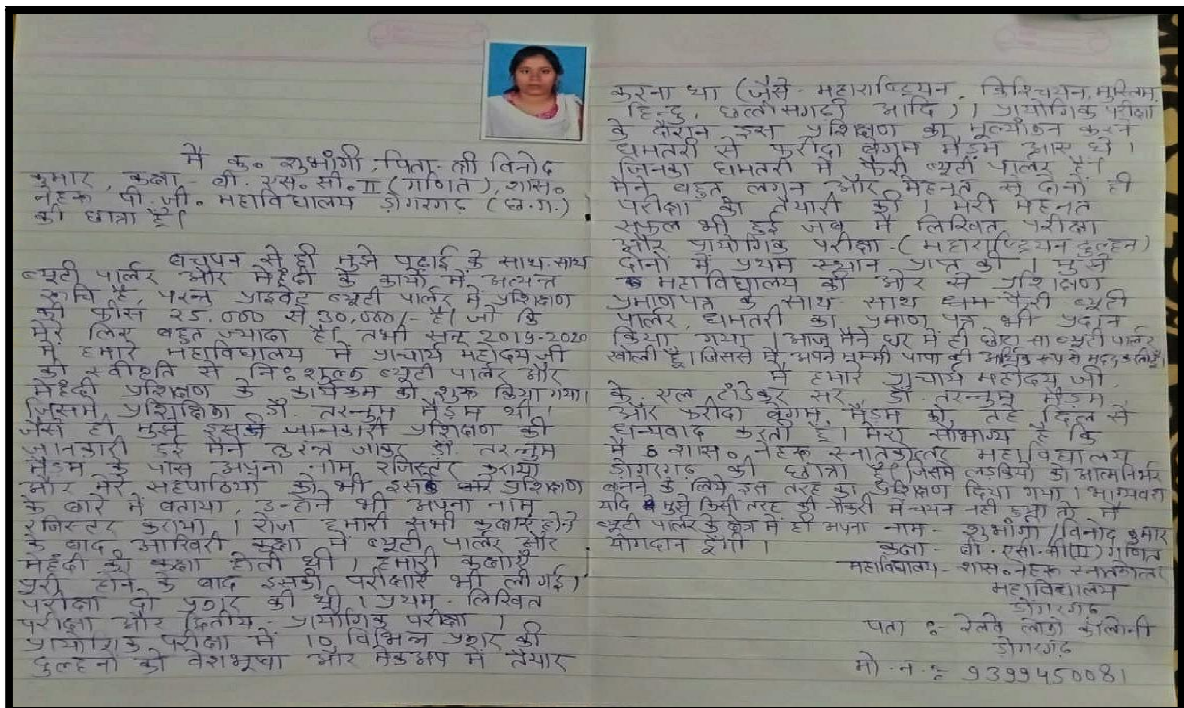 मै कु० शुभांगी, पिता- श्री विनोद
कुमार, कक्षा - बी. एस. सी. II (गणित), शास०
नेहरू पी.जी. महाविद्यालय डोंगरगढ़ (छ.ग.)
की छात्रा हूँ।
बचपन से ही मुझे पढ़ाई के साथ-साथ
ब्यूटी पार्लर और मेहंदी के कार्यो में अत्यन्त
रूचि है, परन्तु प्राइवेट ब्यूटी पार्लर मे प्रशिक्षण
की फीस 25,000 से 30,000/- है। जो कि
मेरे लिए बहुत ज्यादा है। तभी सन् 2019-2020
में हमारे महाविद्यालय में प्राचार्य महोदय जी
की स्वीकृति से निःशुल्क ब्यूटी पार्लर और
मेहंदी प्रशिक्षण के कार्यक्रम को शुरू किया गया।
जिसमे प्रशिक्षिका डॉ. तरन्नुम मैडम थी।
जैसे ही मुझे इसकी जानकारी प्रशिक्षण की
जानकारी हुई मैने तुरन्त जाकर डॉ. तरन्नुम
मैडम के पास अपना नाम रजिस्टर कराया
और मेरे सहपाठियो को भी इसके प्रशिक्षण
के बारे में बताया, उन्होने भी अपना नाम
रजिस्टर कराया। रोज हमारी सभी कक्षाएं होने
के बाद आखिरी कक्षा में ब्यूटी पार्लर और
मेहंदी की कक्षा होती थी। हमारी कक्षाएं
पूरी होने के बाद इसकी परीक्षाएं भी ली गई।
परीक्षा दो प्रकार की थी। प्रथम - लिखित
परीक्षा और द्वितीय - प्रायोगिक परीक्षा।
प्रायोगिक परीक्षा में 10 विभिन्न प्रकार की
दुल्हनो की वेशभूषा और मेकअप मे तैयार
करना था (जैसे- महाराष्ट्रियन, क्रिश्चियन, मुस्लिम,
हिन्दु, छत्तीसगढ़ी आदि)। प्रायोगिक परीक्षा
के दौरान इस प्रशिक्षण का मूल्यांकन करने
धमतरी से फरीदा बेगम मैडम आए थे।
जिनका धमतरी मे फैरी ब्यूटी पार्लर है।
मैने बहुत लगन और मेहनत से दोनो ही
परीक्षा की तैयारी की। मेरी मेहनत
सफल भी हुई जब मै लिखित परीक्षा
और प्रायोगिक परीक्षा - (महाराष्ट्रियन दुल्हन)
दोनो में प्रथम स्थान प्राप्त की। मुझे
महाविद्यालय की ओर से प्रशिक्षण
प्रमाणपत्र के साथ-साथ फैरी ब्यूटी
पार्लर, धमतरी का प्रमाण पत्र भी प्रदान
किया गया। आज मैने घर में ही छोटा सा ब्यूटी पार्लर
खोली हूँ। जिससे मै अपने मम्मी पापा की आर्थिक रूप से मदद करती हूँ।
मै हमारे प्राचार्य महोदय जी,
के एल टांडेकर सर, डॉ. तरन्नुम मैडम
और फरीदा बेगम मैडम को तहे दिल से
धन्यवाद करती हूँ। मेरा सौभाग्य है कि
मै शास० नेहरू स्नातकोत्तर महाविद्यालय
डोंगरगढ़ की छात्रा हूँ, जिसमे लड़कियो को आत्मनिर्भर
बनने के लिये इस तरह का प्रशिक्षण दिया गया। भाग्यवश
यदि मुझे किसी तरह की नौकरी मे चयन नही हुआ तो मै
ब्यूटी पार्लर के क्षेत्र में ही अपना
योगदान दूंगी।
नाम - शुभांगी / विनोद कुमार
कक्षा - बी. एस. सी (II) गणित
महाविद्यालय - शास० नेहरू स्नातकोत्तर
महाविद्यालय
डोंगरगढ़
पता :- रेलवे कॉलोनी
डोंगरगढ़
मो. न. :- 9399450081